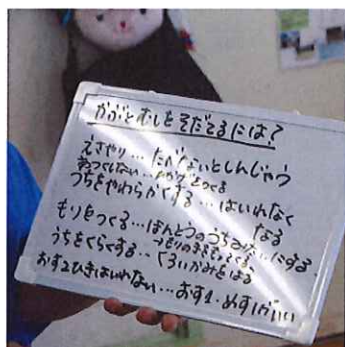 かぶとむしをそだてるには?
えさやり…たべないとしんじゃう
あつくしない…かげをつくる
つちをやわらかくする…はいれなく
なる
もりをつくる…ほんとうのうちみたいにする
→もりのままもってくる
うちをくらくする…くろいかみをはる
おす2ひきはいれない…おす1・めす1がいい